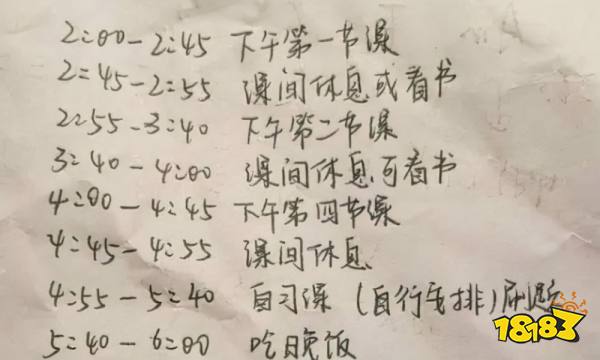 2:00-2:45 下午第一节课
2:45-2:55 课间休息或看书
2:55-3:40 下午第二节课
3:40-4:00 课间休息.可看书
4:00-4:45 下午第四节课
4:45-4:55 课间休息.
4:55-5:40 自习课(自行安排)刷题
5:40-6:00 吃晚饭
18183